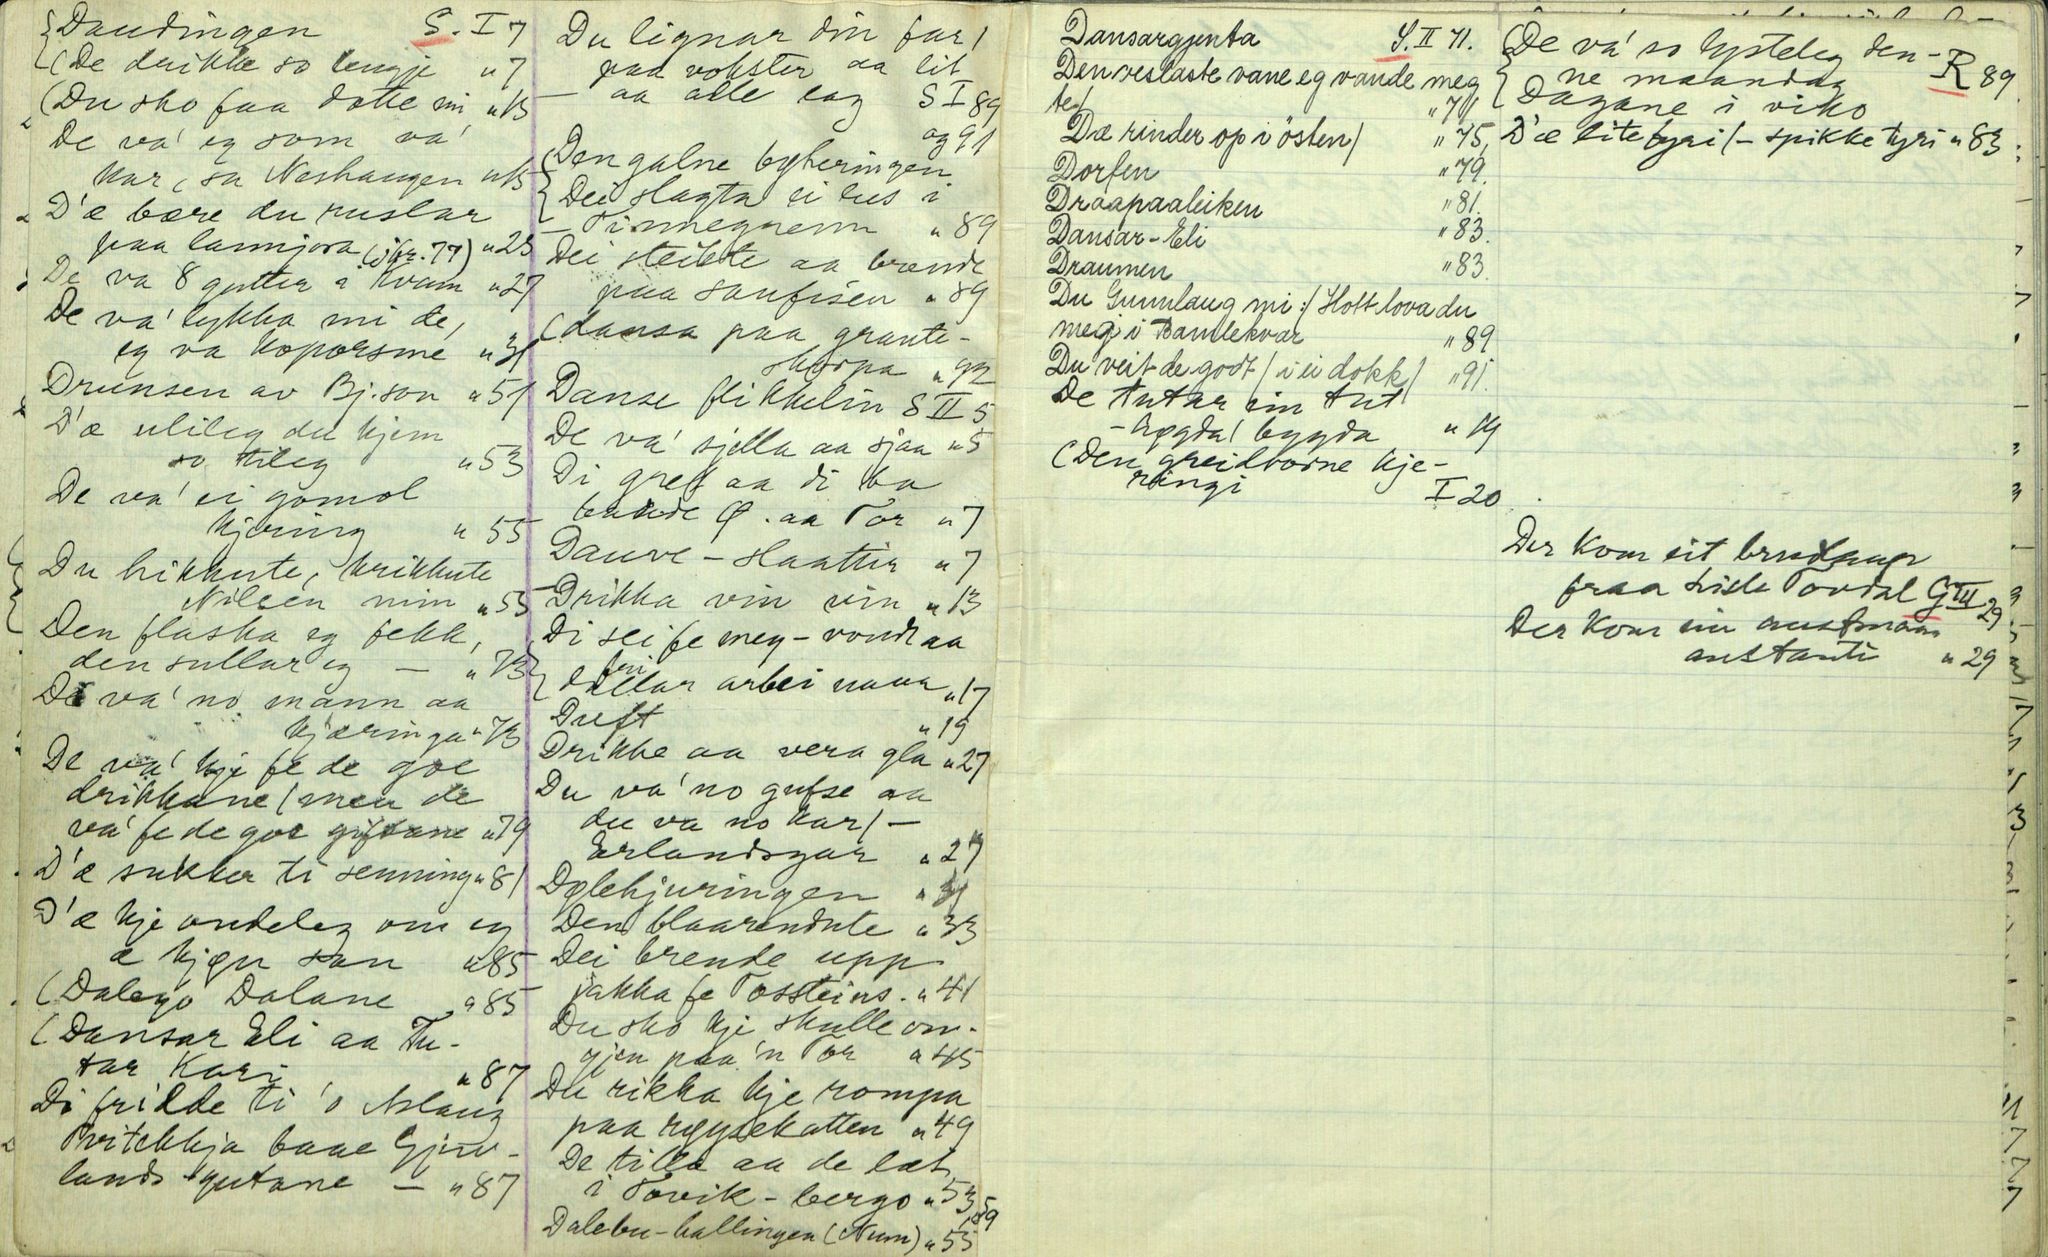 Daudingen S. I 7
(De drikke so lengje " 7
(Du sko faa dotte mi " 13
De va' eg som va'
kar, sa Neshaugen " 13
D'æ bære du ruslar
paa lannjora (jfr. 77) " 23
De va 8 gutter i Kvam " 27
De va' lykka mi de,
eg va koporsmé " 31
Drunsen av Bj.son " 51
D'æ ulileg du kjem
so tileg " 53
De va' ei gomol
kjering " 55
Du hikkute, krikkute
Nilsen min " 55
Den flaska eg fekk,
den sullar eg — " 73
De va' no mann aa
kjæringa " 73
De va' kje fe de goe
drikkane / men de
va' fe de goe giftane " 79
D'æ sukker ti senning " 81
D'æ kje ondeleg om eg
æ kjøn san " 85
(Dalego Dalane " 85
(Dansar Eli aa Tu-
tar Kari " 87
Di fridde ti 'o Aslaug
Kvitekkja baae Gjuv-
lands-gutane — " 87
Du lignar din far /
paa vokster aa lit
— aa alle lag S I 89
og 91
Den galne byheringen
Dei slagta ei lus i
— Tinnegrenn " 89
Dei steikte aa brende
paa Saufisen " 89
(dansa paa graute-
skorpa " 92
Danse flikkelin S II 5
De va' sjella aa sjaa " 5
Di gret aa di ba
baade O. aa Tor " 7
Dauve-slaatten " 7
Drikka vin vin " 13
Di sei fe meg - vondt aa
fri
dallar arbei naaa " 17
Duft " 19
Drikke aa vera gla " 27
Du va' no gufse aa
du va no kar / —
Erlandsgar " 27
Dølehjuringen " 31
Den blaarendute " 33
Dei brende upp
jakka fe Tossteins. " 41
Du sko kje skulle om-
gjen paa'n Tor " 45
Du rikka kje rompa
paa røysekatten " 49
De tilla aa de læt
i Tovik-bergo " 53, 59
Dalebu-hallingen (Num) " 55
Dansargjenta S. II 71.
Den veslaste vane eg vande meg
te / " 71
Dæ rinder op i östen / " 75
Dorfen " 79.
Draapaaleiken " 81.
Dansar-Eli " 83.
Draumen " 83.
Du Gunnlaug mi :/ Hott lova du
meg i Bamlekvar " 89
Du veit de godt / i ei dokk / " 91.
De tutar ein tut
- høgda / bygda " 19
(Den greidborne kje-
ringi I 20
(De va' so lysteleg den-
ne maandag R 89.
Dagane i viko
D'æ lite tyri / - spikke tyri " 83
Der kom eit brudlaup
fraa Lisle Tovdal G III 29
Der kom ein austmann
austanti " 29